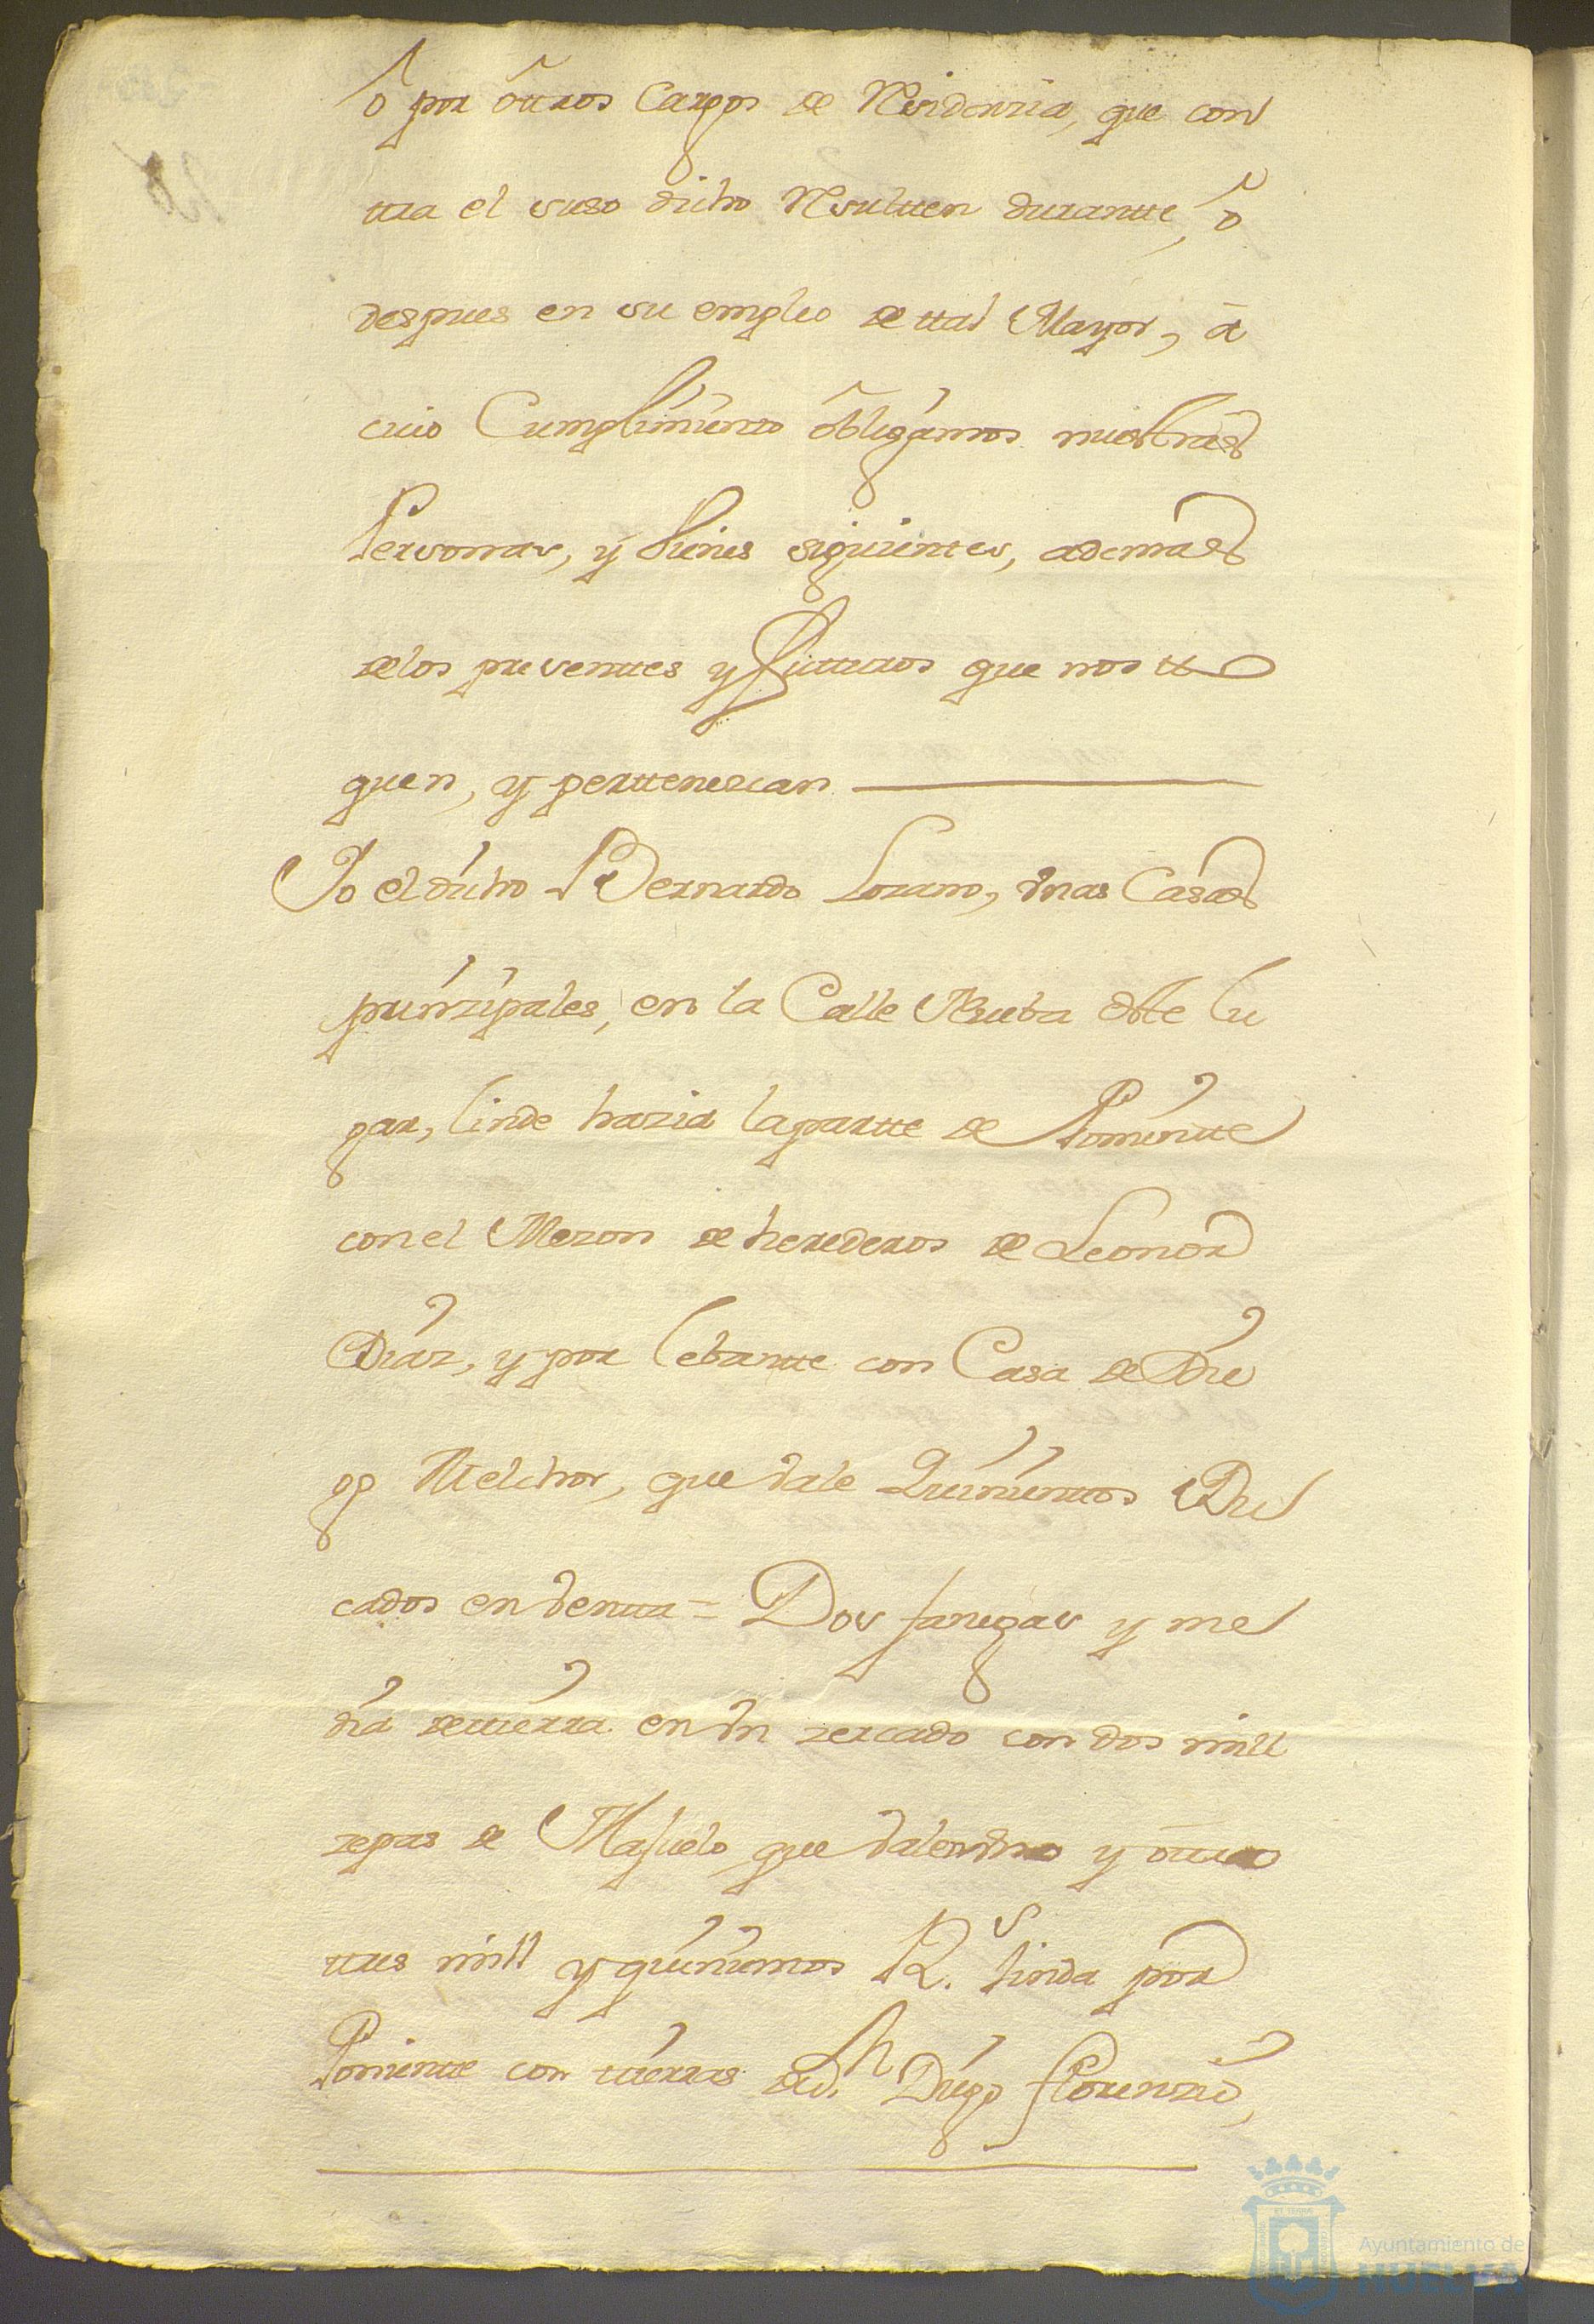 ô por ôttros Cargos de Residenzia, que con
ttra el suso dicho Resultten durantte, ô
despues en su empleo de ttal Mayor, â
cuio Cumplimiento ôbligamos nuestras
Personas, y bienes siguientes, ademas
de los presenttes y futturos que nos to
quen, y perttenescan
Yo el dicho Bernardo Lozano, vnas Casas
prinzipales, en la Calle Nueba deste lu
gar, linde hazia la partte de Ponientte
con el Mezon de herederos de Leonor
Diaz, y por lebantte con Casa de Die
go Melchor, que vale Quinienttos Du
cados en ventta = Dos fanegas y me
dia de tierra en vn zercado con dos mill
zepas de Majuelo que valen vno y ôttro
ttres mill y quinientos R.s linda por
Ponientte con ttierras de D.n Diego florenzio,
Ayuntamiento de
HUELVA